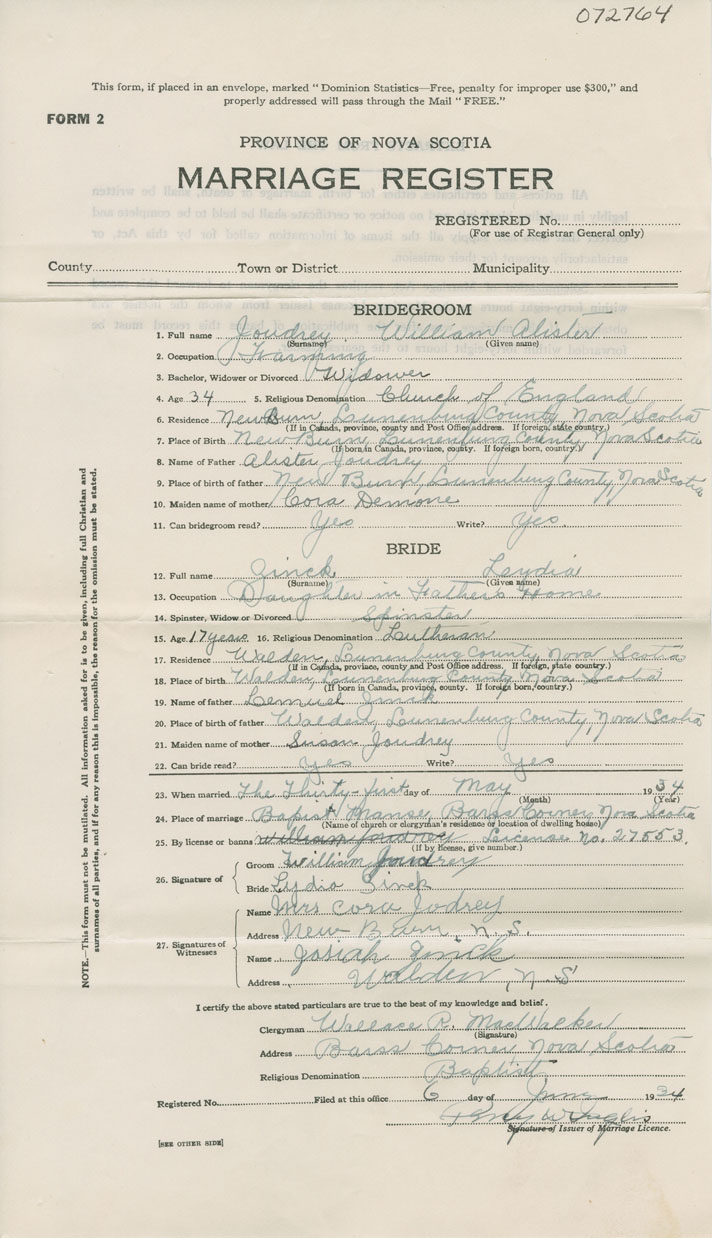 072764
This form, if placed in an envelope, marked "Dominion Statistics—Free, penalty for improper use $300," and
properly addressed will pass through the Mail "FREE."
FORM 2
PROVINCE OF NOVA SCOTIA
MARRIAGE REGISTER
REGISTERED No.
(For use of Registrar General only)
County Town or District Municipality
BRIDEGROOM
1. Full name Joudrey William Alister
(Surname) (Given name)
2. Occupation Farming
3. Bachelor, Widower or Divorced Widower
4. Age 34 5. Religious Denomination Church of England
6. Residence New Burn, Lunenburg County Nova Scotia
(If in Canada, province, county and Post Office address. If foreign, state country.)
7. Place of Birth New Burn, Lunenburg County, Nova Scotia
(If born in Canada, province, county. If foreign born, country.)
8. Name of Father Alister Joudrey
9. Place of birth of father New Burn, Lunenburg County, Nova Scotia
10. Maiden name of mother Cora Demone
11. Can bridegroom read? Yes Write? Yes
BRIDE
12. Full name Zinck Leydia
(Surname) (Given name)
13. Occupation Daughter in Father's Home
14. Spinster, Widow or Divorced Spinster
15. Age 17 years 16. Religious Denomination Lutheran
17. Residence Walden, Lunenburg County, Nova Scotia
(If in Canada, province, county and Post Office address. If foreign, state country.)
18. Place of birth Walden, Lunenburg County Nova Scotia
(If born in Canada, province, county. If foreign born, country.)
19. Name of father Lemuel Zinck
20. Place of birth of father Walden, Lunenburg County, Nova Scotia
21. Maiden name of mother Susan Joudrey
22. Can bride read? Yes Write? Yes
23. When married The Thirty-first day of May 1934
(Month) (Year)
24. Place of marriage Baptist Manse, Barss Corner Nova Scotia
(Name of church or clergyman's residence or location of dwelling house)
25. By license or banns William Joudrey License No. 27553.
(If by license, give number.)
26. Signature of
Groom William Joudrey
Bride Lydia Zinck
27. Signatures of Witnesses
Name Mrs Cora Jodrey
Address New Burn, N. S.
Name Josiah Zinck
Address Walden, N S
I certify the above stated particulars are true to the best of my knowledge and belief.
Clergyman Wallace R. MacWalker
(Signature)
Address Barss Corner Nova Scotia
Religious Denomination Baptist
Registered No. Filed at this office 6 day of June 1934
Signature of Issuer of Marriage Licence.
[SEE OTHER SIDE]
NOTE.—This form must not be mutilated. All information asked for is to be given, including full Christian and
surnames of all parties, and if for any reason this is impossible, the reason for the omission must be stated.